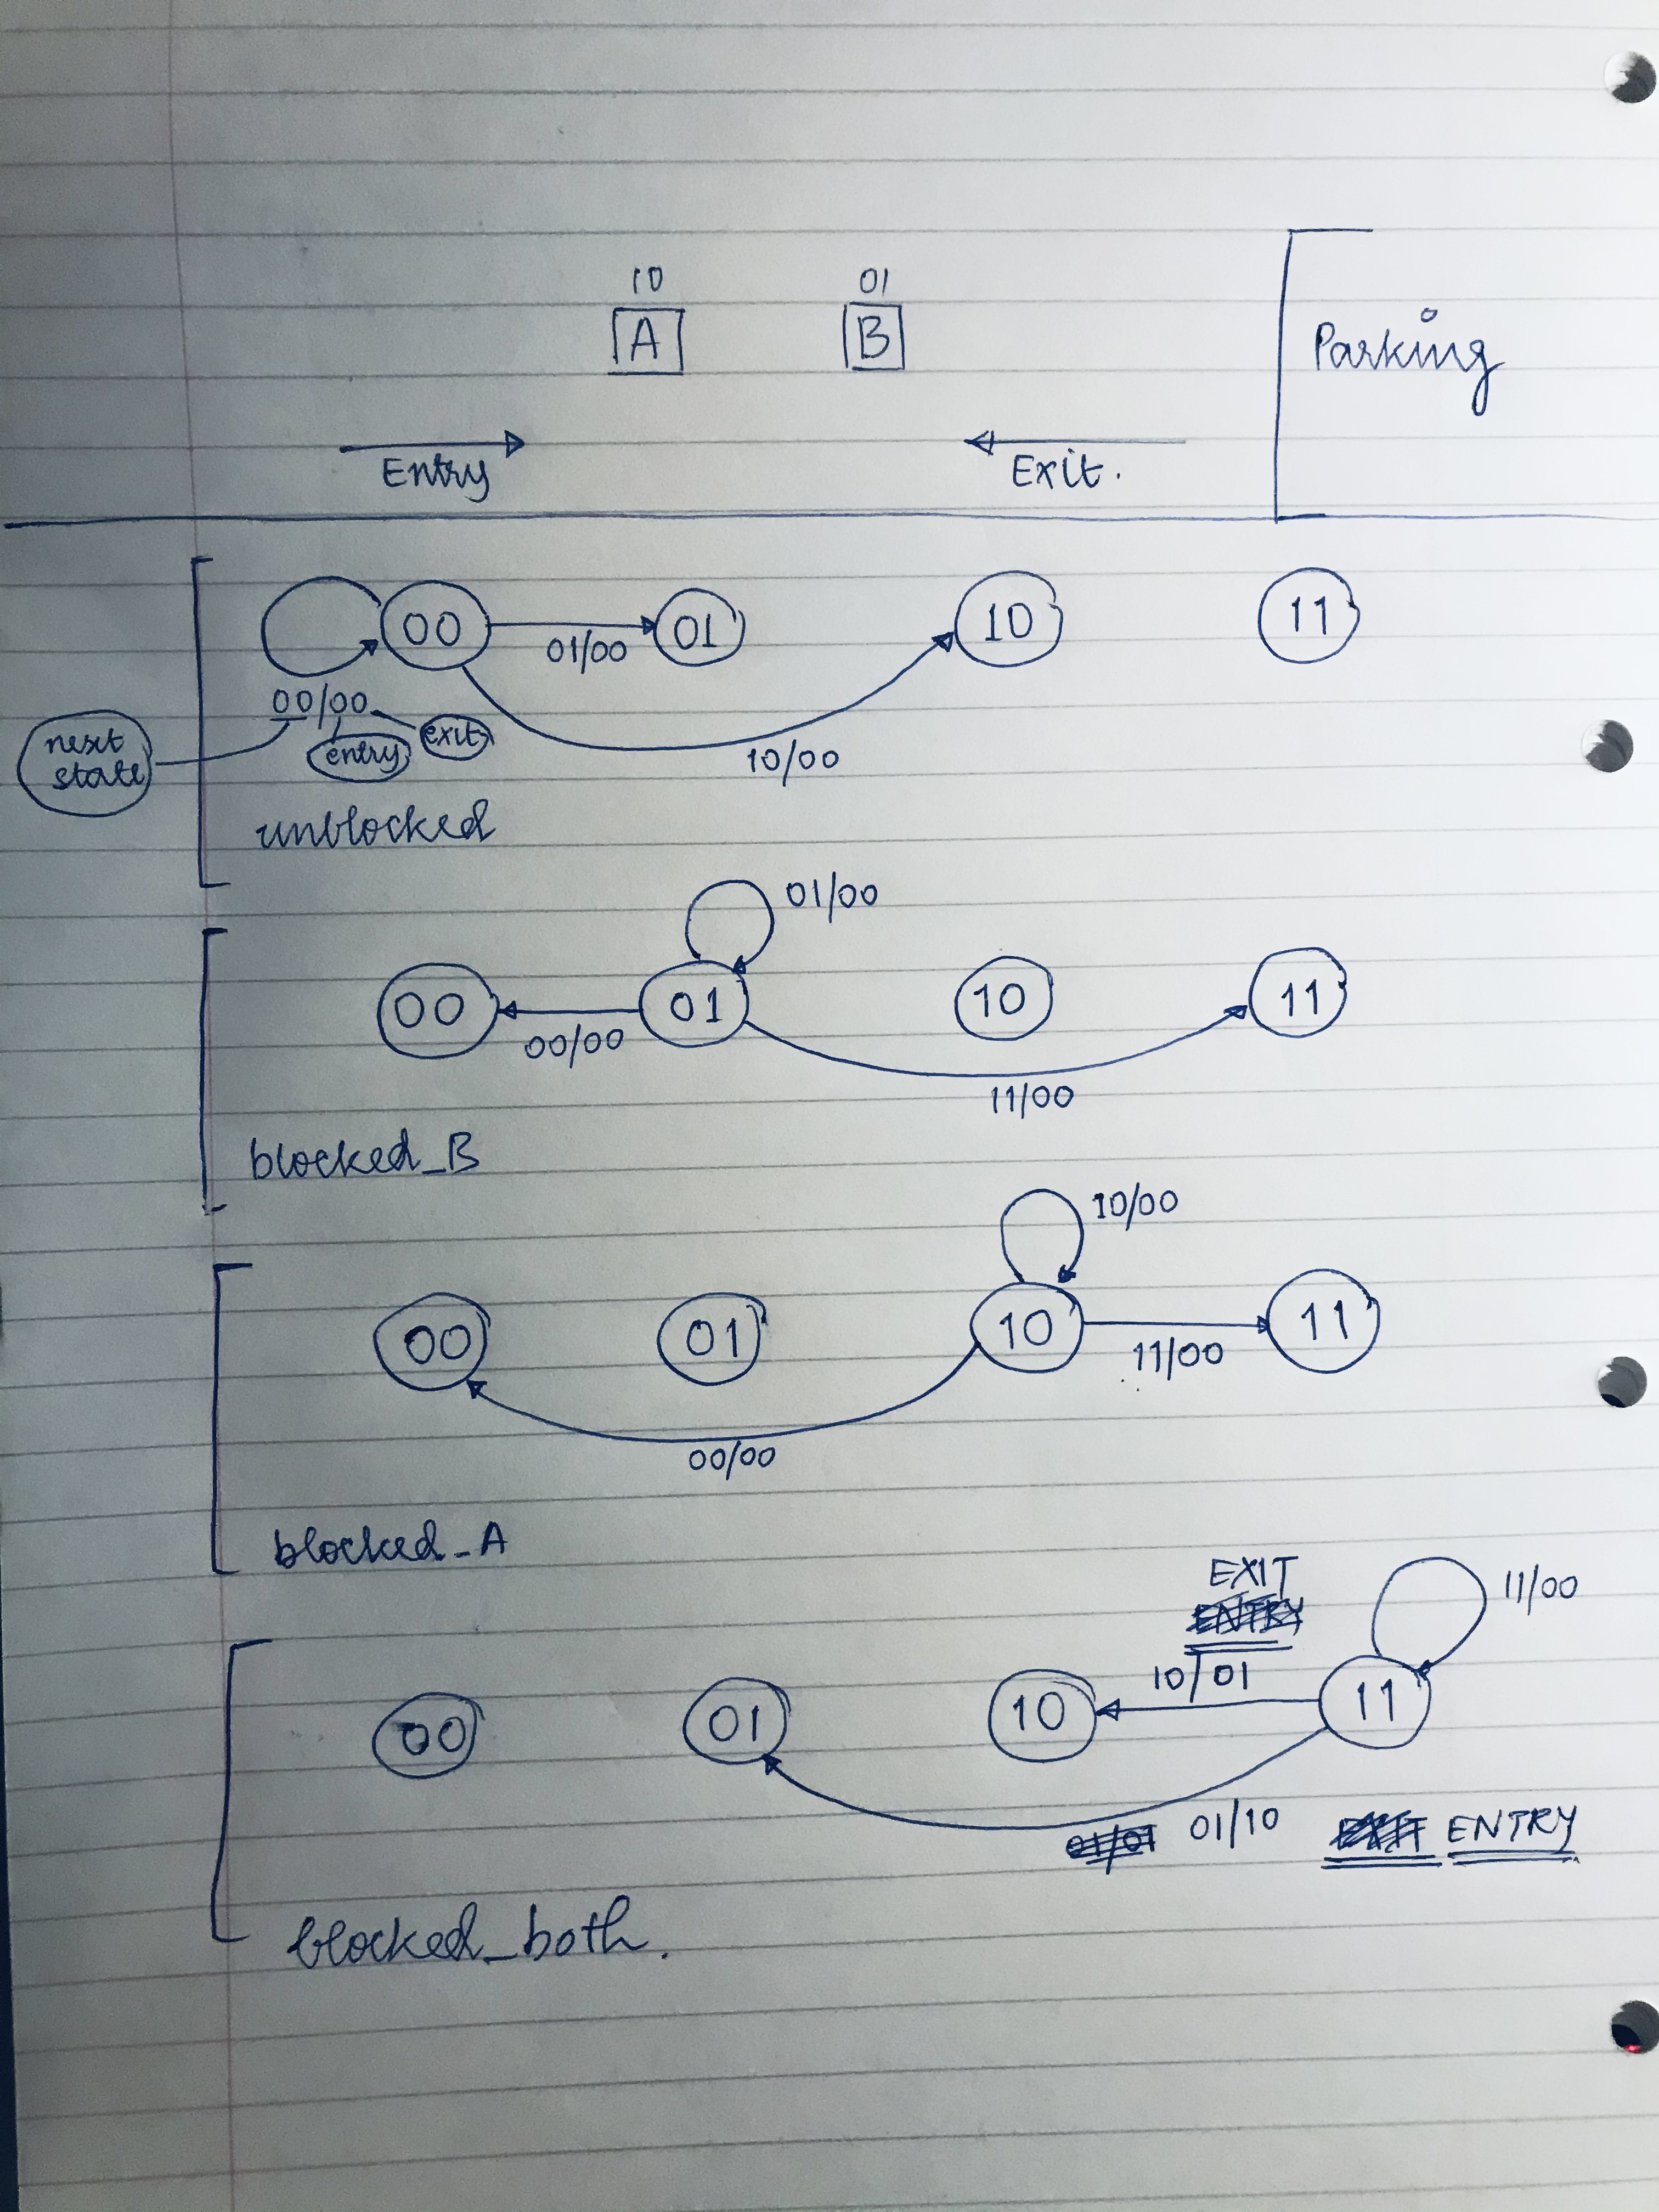 10 01
A B
Parking
Entry Exit.
00 01 10 11
01/00
00/00
next state
entry exit
10/00
unblocked
01/00
00 01 10 11
00/00
11/00
blocked_B
10/00
00 01 10 11
11/00
00/00
blocked_A
EXIT
ENTRY
11/00
10/01
00 01 10 11
01/01 01/10 EXIT ENTRY
blocked_both.